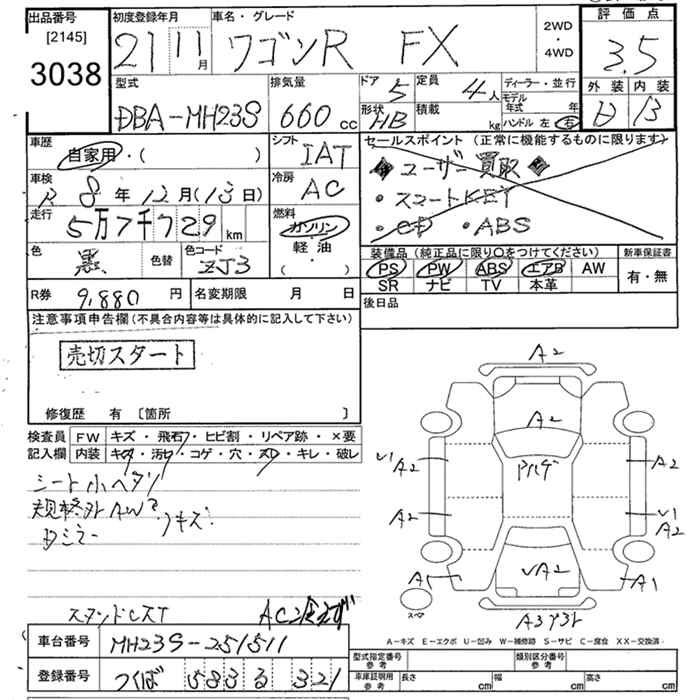 出品番号
[2145]
3038
初度登録年月
21 11月
車名・グレード
ワゴンR FX
2WD
・
4WD
評価点
3.5
外装 内装
B
型式
DBA-MH23S
排気量
660 cc
ドア 5
形状 HB
定員 4人
積載 kg
ディーラー・並行
モデル年式 年
ハンドル 左 右
車歴
自家用・( )
シフト
IAT
車検
R 8年12月(13日)
冷房
AC
走行
5万7千729 km
燃料
ガソリン
軽油
・( )
色
黒
色替
色コード
ZJ3
セールスポイント (正常に機能するものに限ります)
◆ユーザー買取◆
・スマートKEY
・CD ・ABS
装備品 (純正品に限り○をつけてください)
PS PW ABS エアB AW
SR ナビ TV 本革
新車保証書
有・無
R券 9,880 円
名変期限 月 日
後日品
注意事項申告欄(不具合内容等は具体的に記入して下さい)
売切スタート
修復歴 有〔箇所 〕
検査員記入欄
FW キズ・飛石・ヒビ割・リペア跡・×要
内装 キズ・汚レ・コゲ・穴・スレ・キレ・破レ
シート小ヘタリ
規格外AW?
キズ
Dミラー
スタンドレスT
A2
A2
U1 A2
A2
A2
U1 A2
A1
A1
UA2
スペア
A-キズ E-エクボ U-凹み W-補修跡 S-サビ C-腐食 XX-交換済
車台番号 MH23S-251511
登録番号 つくば 583 る 321
型式指定番号 参考
類別区分番号 参考
車庫証明用 参考
長さ cm
幅 cm
高さ cm